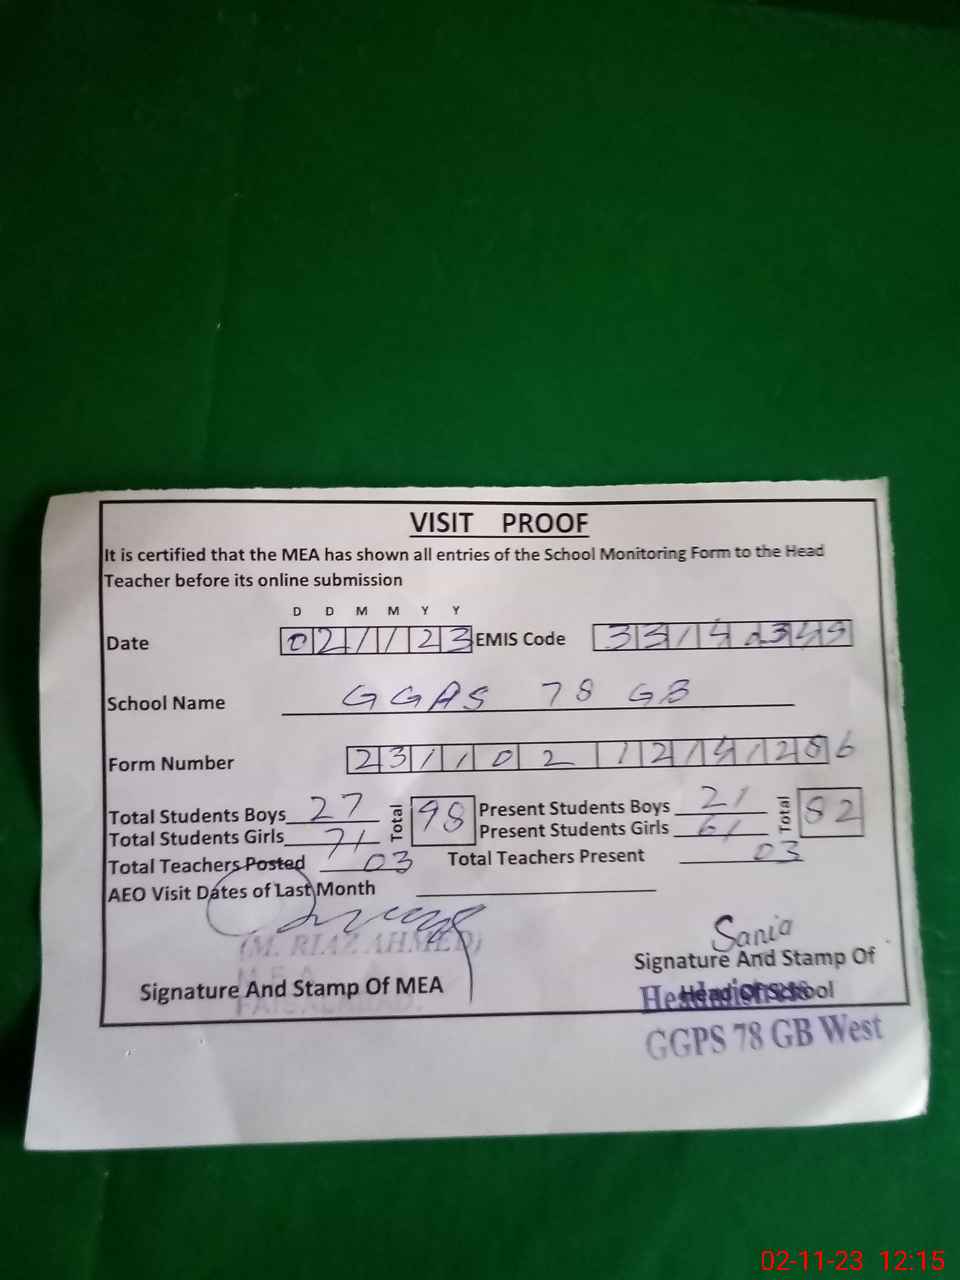 VISIT PROOF
It is certified that the MEA has shown all entries of the School Monitoring Form to the Head
Teacher before its online submission
D D M M Y Y
Date 021123 EMIS Code
School Name GGPS 78 GB
Form Number
Total Students Boys 27 Total 98 Present Students Boys 21 Total 82
Total Students Girls 71 Present Students Girls 61
Total Teachers Posted 03 Total Teachers Present 03
AEO Visit Dates of Last Month
(M. RIAZ AHMED)
M.E.A
FAISALABAD.
Signature And Stamp Of MEA
Sania
Signature And Stamp Of
Head Of School
Headmistress
GGPS 78 GB West
02-11-23 12:15